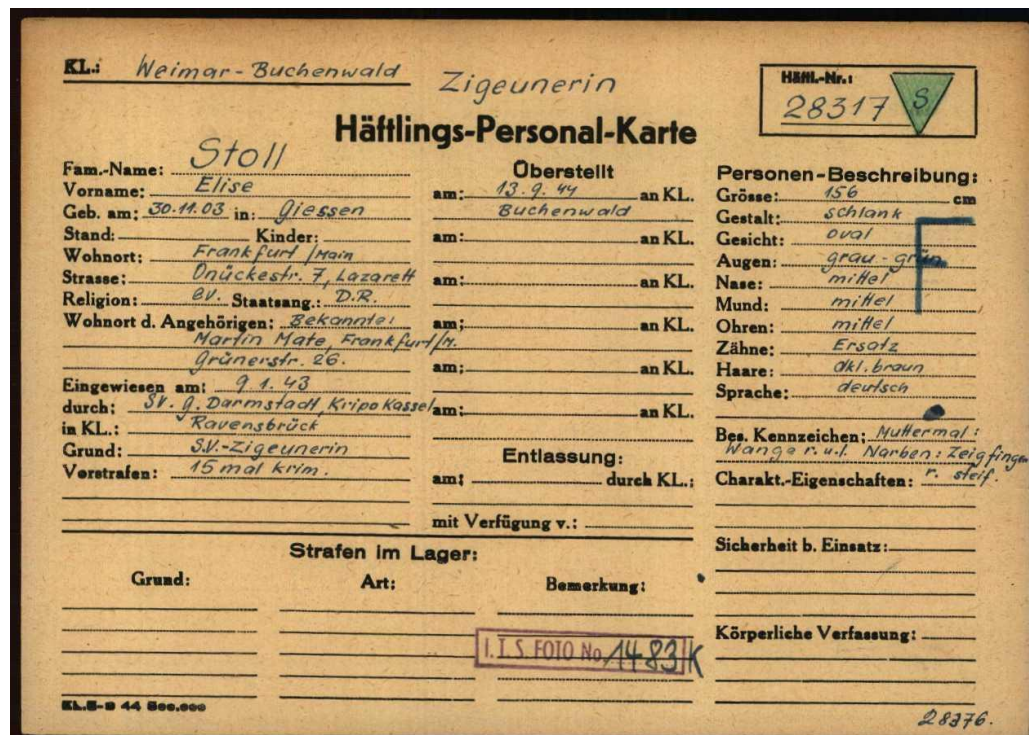 KL.: Weimar-Buchenwald
Zigeunerin
Häftl.-Nr.:
28317 S
Häftlings-Personal-Karte
Fam.-Name: Stoll
Vorname: Elise
Geb. am: 30.11.03 in: Giessen
Stand: Kinder:
Wohnort: Frankfurt/Main
Strasse: Onückestr. 7, Lazarett
Religion: ev. Staatsang.: D.R.
Wohnort d. Angehörigen: Bekannte:
Martin Mate, Frankfurt/M.
Grünerstr. 26.
Eingewiesen am: 9.1.43
durch: SV. g. Darmstadt, Kripo Kassel
in KL.: Ravensbrück
Grund: S.V.-Zigeunerin
Vorstrafen: 15 mal krim.
Überstellt
am: 13.9.44 an KL.
Buchenwald
am: an KL.
am: an KL.
am: an KL.
am: an KL.
am: an KL.
Entlassung:
am: durch KL.:
mit Verfügung v.:
Personen-Beschreibung:
Grösse: 156 cm
Gestalt: schlank
Gesicht: oval
Augen: grau-grün
F
Nase: mittel
Mund: mittel
Ohren: mittel
Zähne: Ersatz
Haare: dkl. braun
Sprache: deutsch
Bes. Kennzeichen: Muttermal:
Wange r. u. l. Narben: Zeigfinger
r. steif.
Charakt.-Eigenschaften:
Sicherheit b. Einsatz:
Körperliche Verfassung:
Strafen im Lager:
Grund: Art: Bemerkung:
I.T.S. FOTO No. 1483 K
28376.